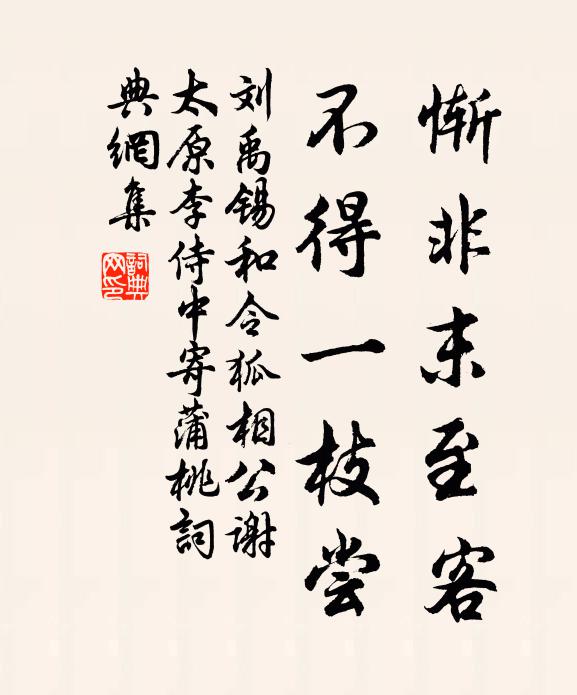 慚非末至客
不得一枝尝
刘禹锡和令狐相公谢
太原李侍中寄蒲桃詞
典網集
詞典网印